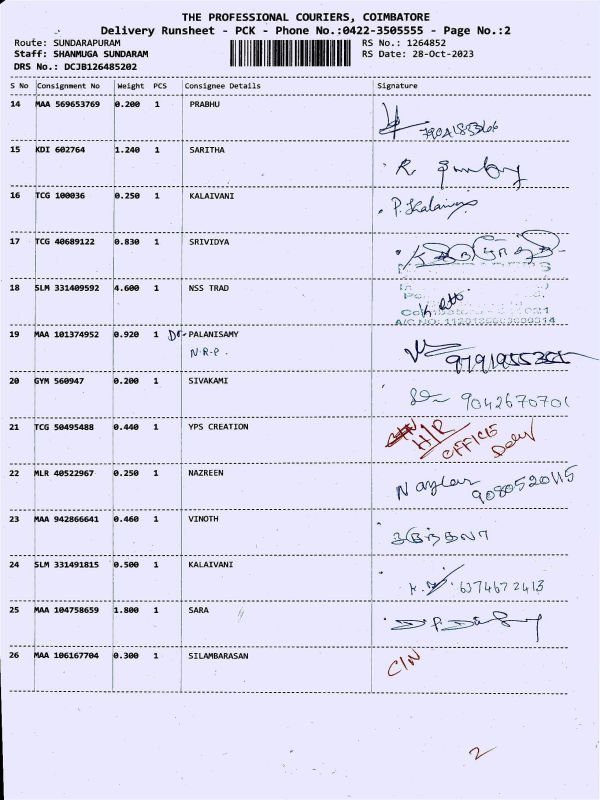 THE PROFESSIONAL COURIERS, COIMBATORE
Delivery Runsheet - PCK - Phone No.:0422-3505555 - Page No.:2
Route: SUNDARAPURAM RS No.: 1264852
Staff: SHANMUGA SUNDARAM RS Date: 28-Oct-2023
DRS No.: DCJB126485202
S No Consignment No Weight PCS Consignee Details Signature
14 MAA 569653769 0.200 1 PRABHU
15 KDI 602764 1.240 1 SARITHA R.
16 TCG 100036 0.250 1 KALAIVANI P. Kalaivani
17 TCG 40689122 0.830 1 SRIVIDYA
18 SLM 331409592 4.600 1 NSS TRAD
19 MAA 101374952 0.920 1 Dr. PALANISAMY
N.R.P.
20 GYM 560947 0.200 1 SIVAKAMI 9042670701
21 TCG 50495488 0.440 1 YPS CREATION H/R OFFICE Delv
22 MLR 40522967 0.250 1 NAZREEN 9080520115
23 MAA 942866641 0.460 1 VINOTH
24 SLM 331491815 0.500 1 KALAIVANI 6374672413
25 MAA 104758659 1.800 1 SARA
26 MAA 106167704 0.300 1 SILAMBARASAN C/N
2